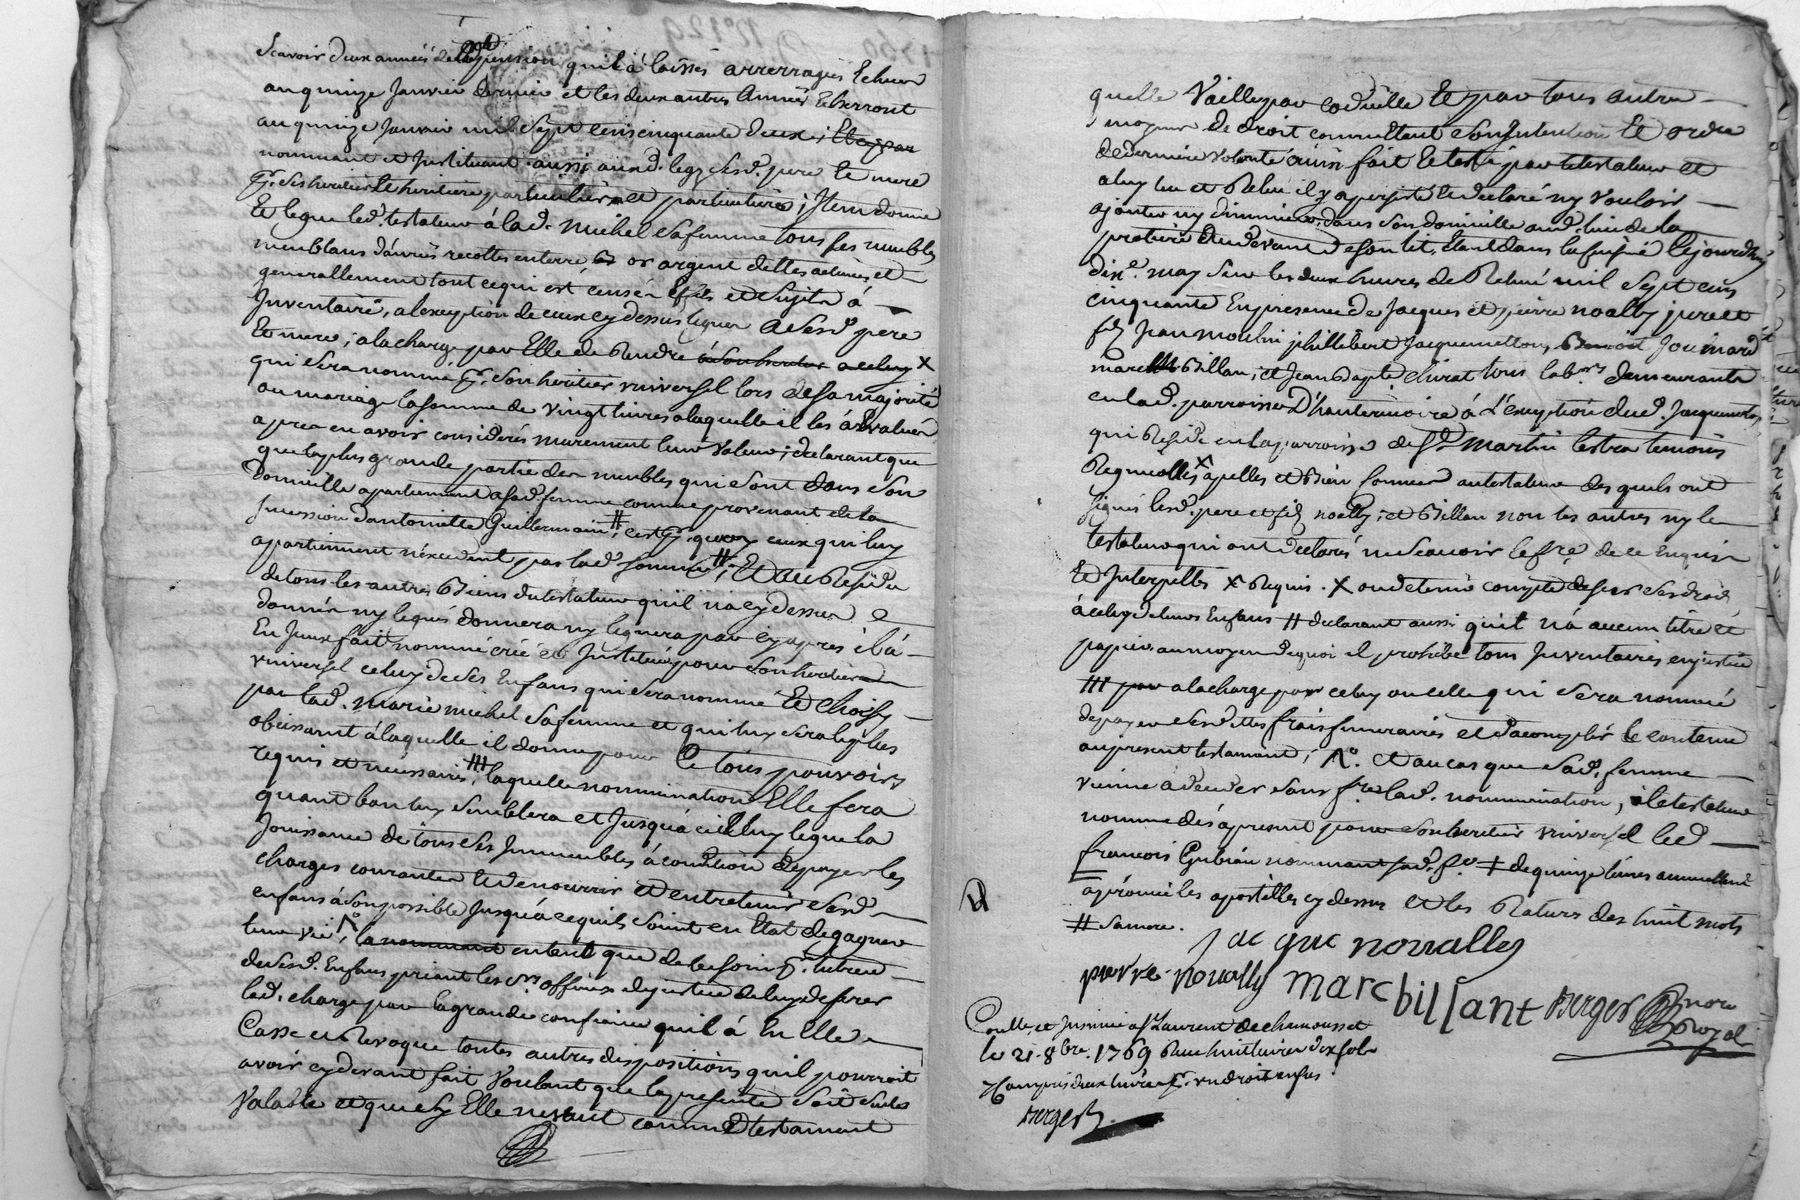 Scavoir deux années de lad. pension quil a laissés arrerragés Echues
au quinze Janvier dernier et les deux autres Années Echerront
au quinze Janvier mil sept cens cinquante deux ; Et pour
nommant et Instituant aussi aud. legz sesd. pere Et mere
pr. ses heritier Et heritiere particulier et particuliere ; Item donne
Et legue led. testateur à lad. michel sa femme tous ses meubles
meublans danrés recoltes enterré or argent dettes actives et
generallement tout ce qui est censé Effets et sujets à
Inventaire, a lexeption de ceux cy dessus legués a sesd. pere
Et mere ; a la charge par Elle de Rendre à son heritier a celuy X
qui sera nommé pr. son heritier universel lors de sa majorité
ou mariage la somme de vingt livres a laquelle il les à Evalués
apres en avoir considerés murement leur valeur ; declarant que
que la plus grande partie des meubles qui sont dans son
Domicille apartiennent a sad. femme comme provenant de la
succession dantoinette Guillermain, # c'est pr. quoy ceux qui luy
apartiennent n'excedent pas lad. somme # ; Et Au Residu
de tous les autres Biens du testateur quil n'a cy dessus
donnés ny legués donnera ny leguera par cy après il à
En Iceux fait nommé créé et Institué pour son heritier
universel celuy de ses Enfans qui sera nommé Et choisy
par lad. marie michel sa femme et qui luy sera le plus
obeissant à laquelle il donne pour Ce tous pouvoirs
requis et necessaires, ### laquelle nommination Elle fera
quant bon luy semblera et Jusqu'à ce il luy legue la
Jouissance de tous ses Immeubles à condition de payer les
charges courantes Et de nourrir et entretenir sesd.
enfans à son possible Jusqu'à ce quils soint en Etat de gagner
leur vie ; la nommant entant que de besoin pr. tutrice
de sesd. Enfans priant les Srs officiers de justice de luy deferer
lad. charge par la grande confiance quil à En Elle
Casse et Revoque toutes autres dispositions quil pourroit
avoir cy devant fait Voulant que la presente soit seule
Valable et que sy Elle ne vaut comme testament
quelle Vaille par codicille Et par tous autres
moyens de droit comme etant son Intention Et ordre
de derniere volonté ainsi fait Et testé par le testateur et
a luy lu et Relu il y a persisté Et declaré ny vouloir
ajouter ny diminuer, dans son domicille aud. lieu de la
au devant de son lit, Etant dans la cuisine Cejourdhuy
dixe. may sur les deux heures de Relevé mil sept cens
cinquante En presence de Jacques et pierre noally pere et
fils Jean moulin phillibert Jacquemetton, Benoit Joumard
marc Billan, et Jean Bapte. chirat tous labrs. demeurants
en lad. parroisse D'hauterivoire à L'exeption dud. Jacquemeton
qui Reside en la parroisse de St. martin lestra temoins
Requis X apellés et Bien connus au testateur desquels ont
signés lesd. pere et fils noally, et Billan non les autres ny le
testateur qui ont declarés ne scavoir le fre. de ce Enquis
Et Interpellés X Requis . X ou de tenir compte de sur ses droits
à celuy de leurs Enfans # declarant aussi quil n'a aucun titre et
papier au moyen dequoi il prohibe tous Inventaires en justice
### par a la charge par celuy ou celle qui sera nommé
de payer sesd. dettes frais funeraires et d'acomplir le contenu
au present testament ; et au cas que sad. femme
vienne à deceder sans fre lad. nommination, le testateur
nomme dès apresent pour son heritier universel led.
francois Gubian nommant sad. fe. # de quinze livres annuellement
aprouvé les apostilles cy dessus et les Raturs des huit mots
# sa mere.
Jacque noually
pierre noually marc billant Berger
nore Royal
Conllé et Insinué a St Laurent de chamousset
le 21. 8bre. 1769 Reçu huit livres dix sols
compris deux livres pr. un droit en sus
Berger